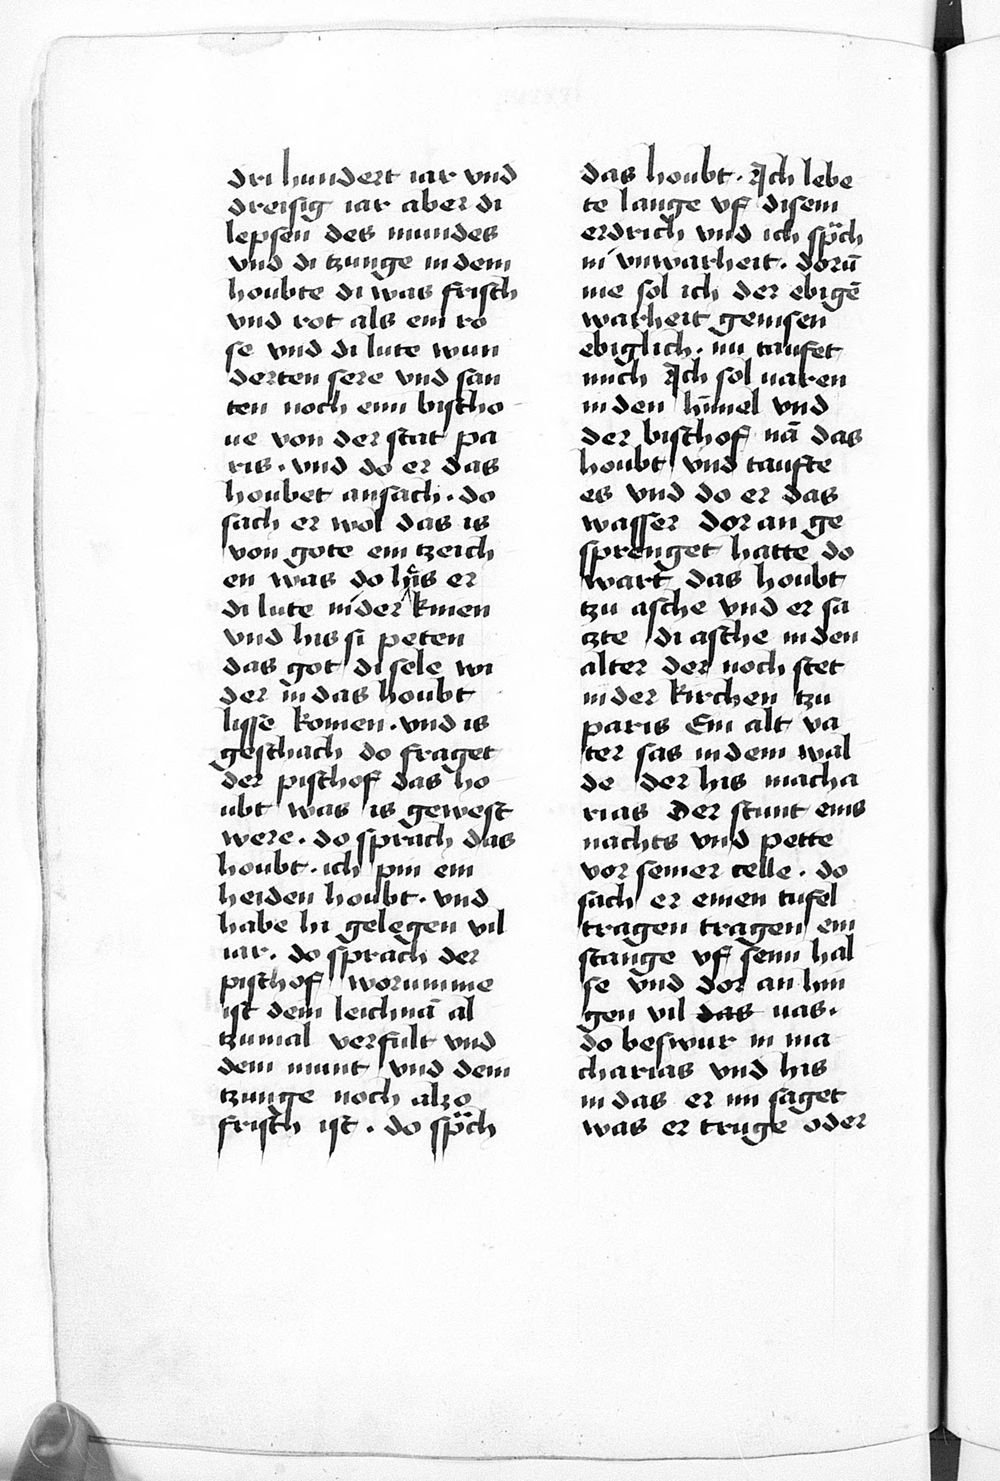 dri hundert iar vnd
dreisig iar aber di
lepsen des mundes
vnd di tzunge in dem
houbte di was frisch
vnd rot als ein ro
se vnd di lute wun
derten sere vnd san
ten noch einn bischo
ue von der stat pa
ris. vnd do er das
houbet ansach. do
sach er wol das is
von gote ein tzeich
en was do his er
di lute nider knien
vnd his si peten
das got di sele wi
der in das houbt
lisse komen. vnd is
geschach do fraget
der pischof das ho
ubt was is gewest
were. do sprach das
houbt. ich pin ein
heiden houbt. vnd
habe hi gelegen vil
iar. do sprach der
pischof worumme
ist dem leichnā al
tzumal verfult vnd
dem munt vnd dem
tzunge noch alzo
frisch ist. do spͣch
das houbt. Ich lebe
te lange vf disem
erdrich vnd ich spͣch
ni vnwarheit. dorū
me sol ich der ebigē
warheit genisen
ebiglich. nu taufet
mich Ich sol uaren
in den himel vnd
der bischof nā das
houbt vnd taufte
es vnd do er das
wasser dor an ge
sprenget hatte do
wart das houbt
tzu asche vnd er sa
czte di asche in den
alter der noch stet
in der kirchen tzu
paris Ein alt va
ter sas in dem wal
de der his macha
rias Der stunt eins
nachts vnd pette
vor seiner celle. do
sach er einen tufel
tragen tragen ein
stange vf seim hal
se vnd dor an hin
gen vil das uas.
do beswur in ma
charias vnd his
in das er im saget
was er truge oder